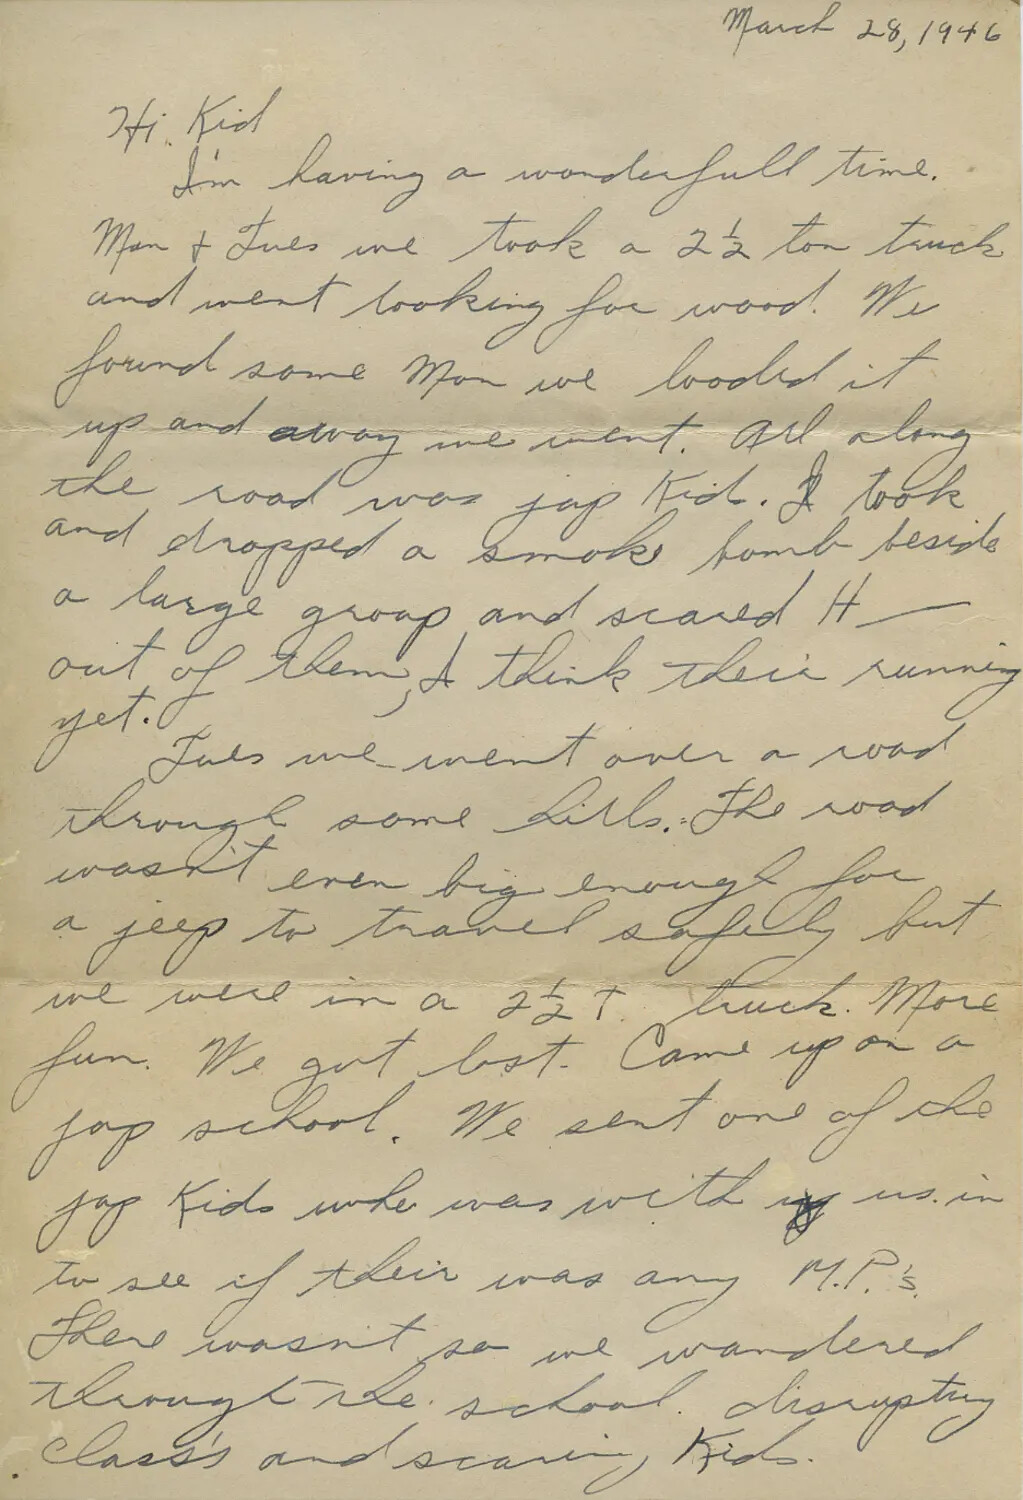 March 28, 1946
Hi. Kid
I'm having a wonderfull time.
Mon + Tues we took a 2½ ton truck
and went looking for wood. We
found some Mon we loaded it
up and away we went. All along
the road was jap Kids. I took
and dropped a smoke bomb beside
a large group and scared H—
out of them, I think their running
yet.
Tues we went over a road
through some hills. The road
wasn't even big enough for
a jeep to travel safely but
we were in a 2½ T. truck. More
fun. We got lost. Came up on a
jap school. We sent one of the
jap Kids who was with us in
to see if their was any M.P.'s.
There wasn't so we wandered
through the school disrupting
class's and scaring Kids.